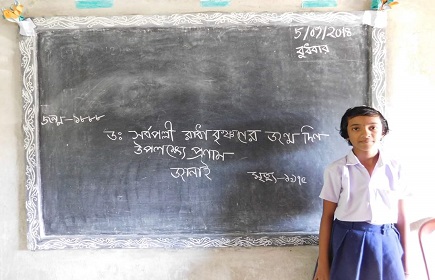 5/09/2018
বুধবার
জন্ম-১৮৮৮
ডঃ সর্বপল্লী রাধাকৃষ্ণণের জন্মদিন
উপলক্ষ্যে প্রণাম
জানাই
মৃত্যু-১৯৭৫